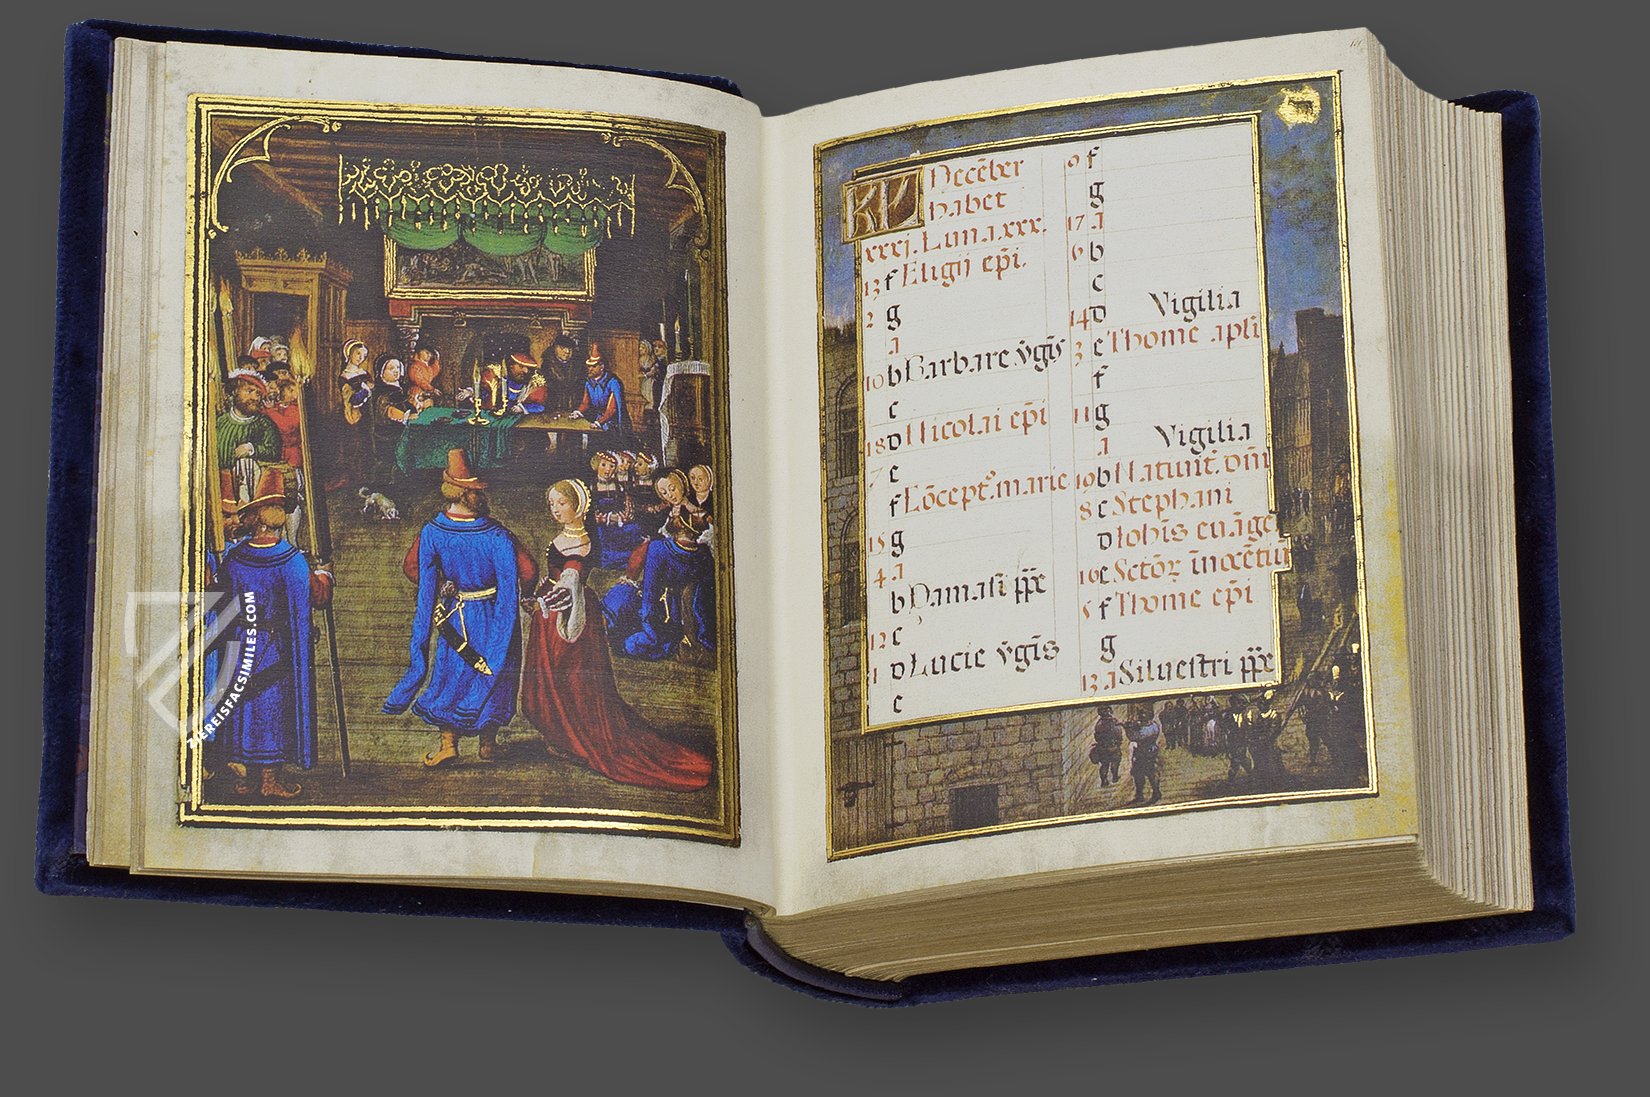 KL Decēber
habet
xxxj. Luna.xxx.
13 f Eligij ep̄i.
2 g
A
10 b Barbare v̄gīs
c
18 D Nicolai ep̄i
7 e
f Cōcept. marie
g
15
4 A
b Damasi pp̄e
12 c
1 D Lucie v̄gīs
e
9 f
g
17 A
6 b
c
14 D Vigilia
3 e Thome apl̄i
f
11 g
A Vigilia
19 b Natiuit. dn̄i
8 c Stephani
D Iohīs euāge
16 e Sctōꝝ īnocētiū
5 f Thome ep̄i
g
13 A Siluestri pp̄e
ZIEREISFACSIMILES.COM